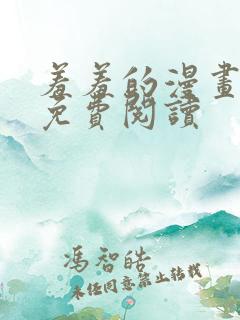 羞羞的漫畫
免費閱讀
馮智皓
未經同意禁止轉載